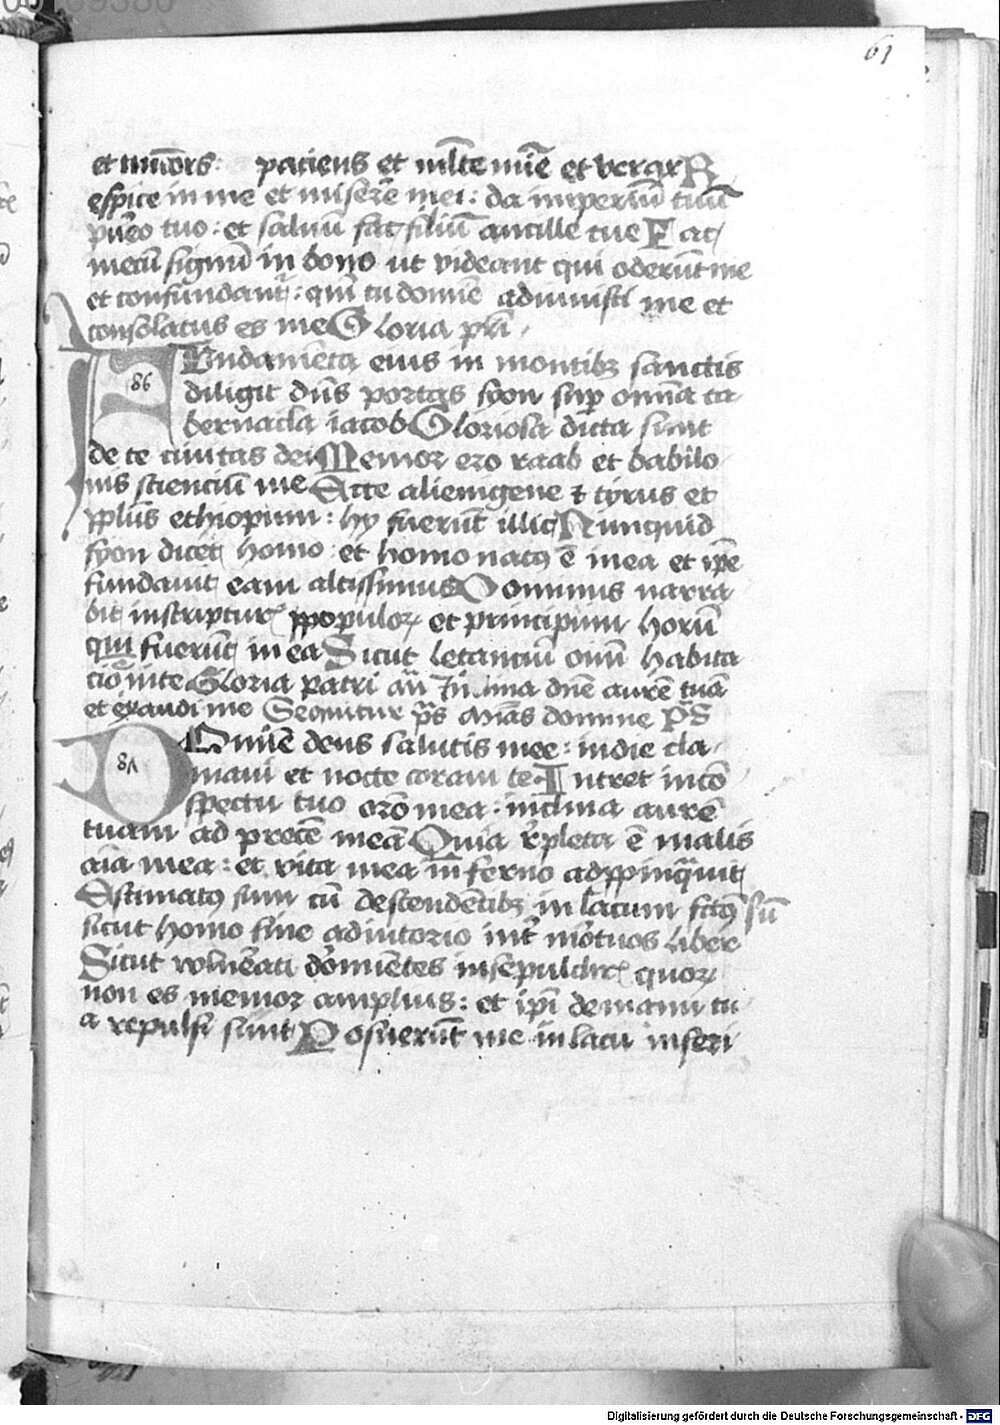 61
et miẜcors: paciens et mlte mīe et verax R
espice in me et miserē mei: da imperiū tuū
puēo tuo: et saluū fac filiū ancille tue Fac
mecū signū in bono ut videant qui oderūt me
et confūndant: qm̄ tu domīe adiuuisti me et
consolatus es me Gloria pr̄i
86
Fundamēta eius in montibꝫ sanctis
diligit dn̄s portas syon sup̄ omīa ta
bernacla iacob Gloriosa dicta sunt
de te ciuitas dei Memor ero raab et babilo
nis scienciū me Ecce alienigene ⁊ tyrus et
ppl̄us ethiopum: hy fuerūt illic Nunquid
syon dicet homo: et homo natꝯ ē in ea et ip̄e
fundauit eam altissimus Dominus narra
bit in scripturꝭ ppopuloꝝ et principum horū
qui fuerūt in ea Sicut letanciū oīm habita
cio in te Gloria patri an̄ Inclina dn̄e aurē tuā
et exaudi me Sequitur p̄s domine Ps
87
Domīe deus salutis mee: in die cla
maui et nocte coram te Intret in cō
spectu tuo or̄o mea: inclina aurē
tuam ad precē meā Quia repleta ē malis
aīa mea: et vita mea inferno adppinq̄uit
Estimatꝯ sum cū descendētibꝫ in lacum fctꝯ sū
sicut homo sine adiutorio int̄ mortuos liber
Sicut vulnerati dormientes in sepulchrꝭ quoꝝ
non es memor amplius: et ip̄i de manu tu
a repulsi sunt Posuerūt me in lacu inferi
Digitalisierung gefördert durch die Deutsche Forschungsgemeinschaft - DFG